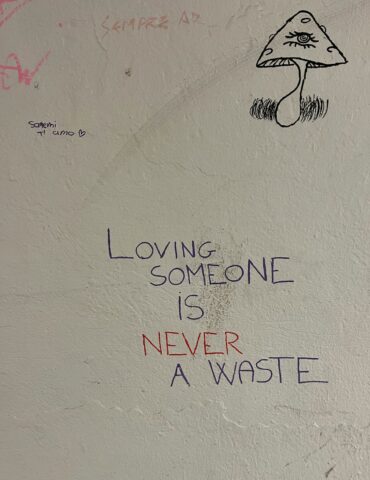 SEMPRE AD
Sonemi
ti amo
LOVING
SOMEONE
IS
NEVER
A WASTE